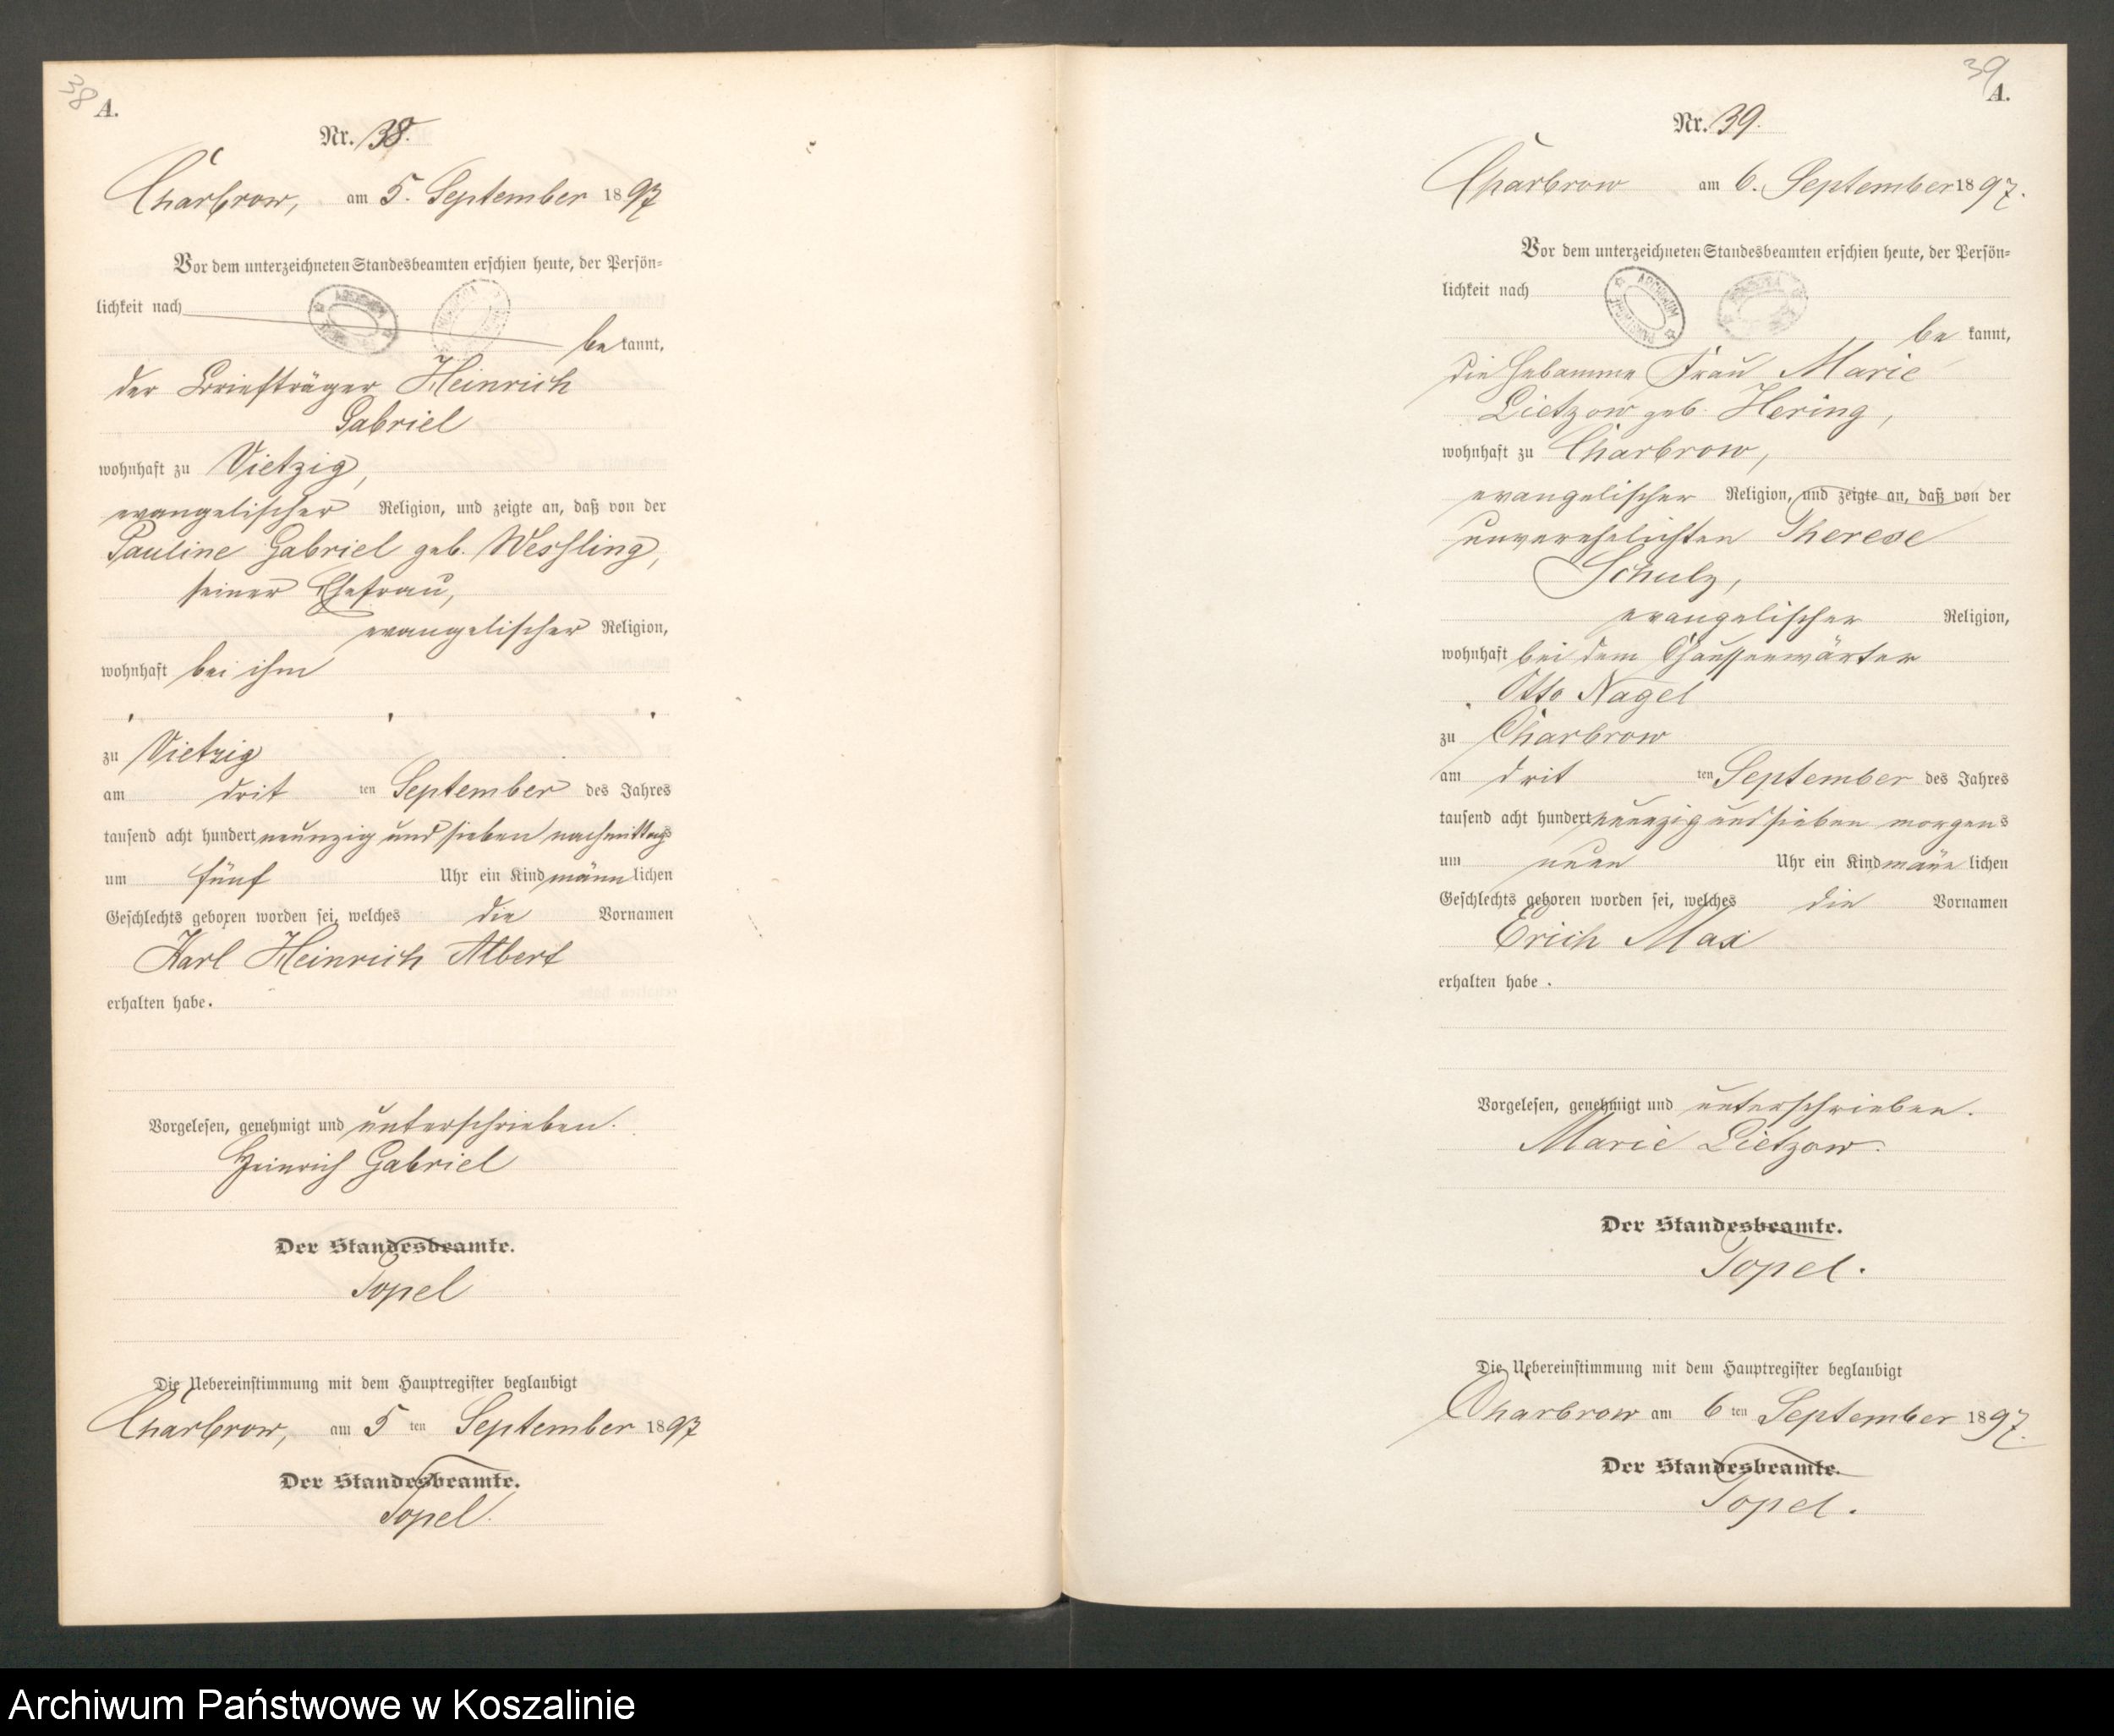 38
A.
Nr. 38.
Charbrow, am 5. September 1897
Vor dem unterzeichneten Standesbeamten erschien heute, der Persön-
lichkeit nach
be kannt,
der Briefträger Heinrich
Gabriel
wohnhaft zu Vietzig,
evangelischer Religion, und zeigte an, daß von der
Pauline Gabriel geb. Wessling,
seiner Ehefrau,
evangelischer Religion,
wohnhaft bei ihm
zu Vietzig
am drit ten September des Jahres
tausend acht hundert neunzig und sieben nachmittags
um fünf Uhr ein Kind männlichen
Geschlechts geboren worden sei, welches die Vornamen
Karl Heinrich Albert
erhalten habe.
Vorgelesen, genehmigt und unterschrieben.
Heinrich Gabriel
Der Standesbeamte.
Topel
Die Uebereinstimmung mit dem Hauptregister beglaubigt
Charbrow, am 5 ten September 1897
Der Standesbeamte.
Topel.
39
A.
Nr. 39.
Charbrow am 6. September 1897.
Vor dem unterzeichneten Standesbeamten erschien heute, der Persön-
lichkeit nach
ARCHIWUM
be kannt,
die Hebamme Frau Marie
Lietzow geb. Hering,
wohnhaft zu Charbrow,
evangelischer Religion, und zeigte an, daß von der
unverehelichten Therese
Schulz,
evangelischer Religion,
wohnhaft bei dem Chausseewärter
Otto Nagel
zu Charbrow
am drit ten September des Jahres
tausend acht hundert neunzig und sieben morgens
um neun Uhr ein Kind männlichen
Geschlechts geboren worden sei, welches die Vornamen
Erich Max
erhalten habe.
Vorgelesen, genehmigt und unterschrieben.
Marie Lietzow.
Der Standesbeamte.
Topel.
Die Uebereinstimmung mit dem Hauptregister beglaubigt
Charbrow am 6 ten September 1897.
Der Standesbeamte.
Topel.
Archiwum Państwowe w Koszalinie